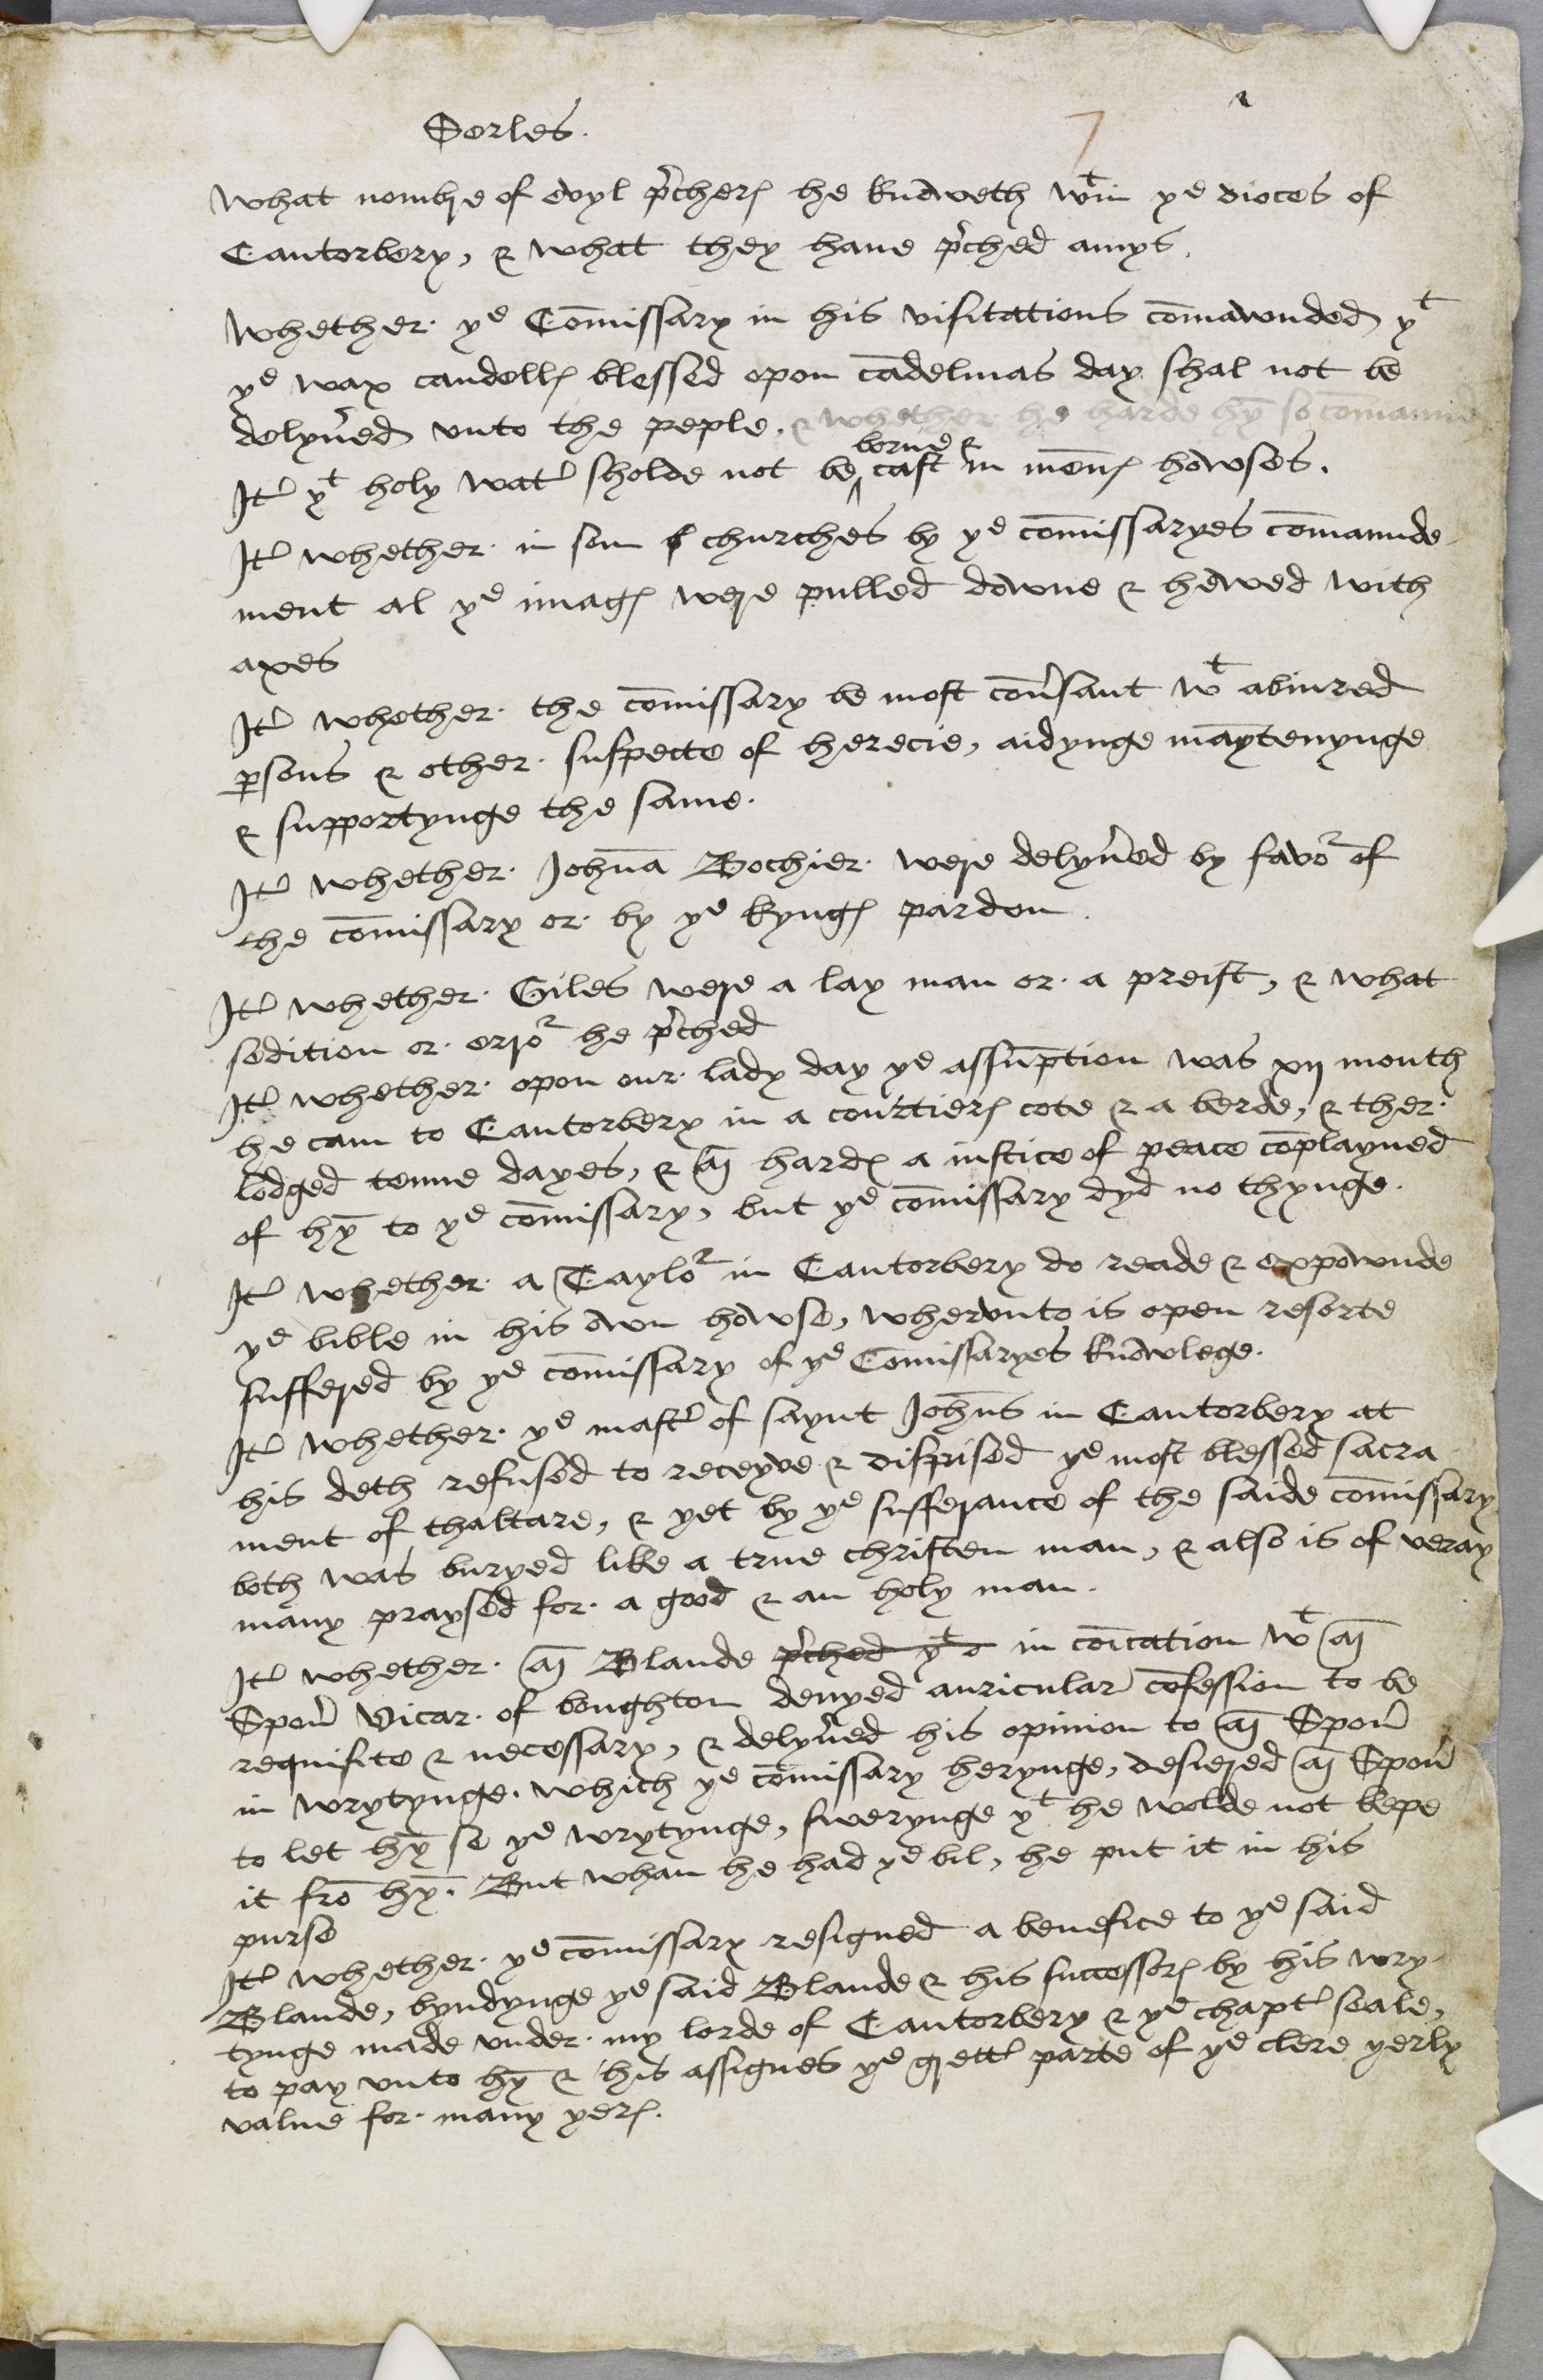 Serles.
7
What nombre of evyl p'chers he knoweth wtin ye dioces of
Cantorbery, & what they have p'ched amys.
Whether ye Com̄issary in his visitations com̄awnded yt
ye wax candells blessed opon cādelmas day shal not be
delyu'ed vnto the peple. & whether he harde hȳ so com̄aunde
It' yt holy wat' sholde not be borne & cast in mens howses.
It' whether in som churches by ye com̄issaryes com̄aunde
ment al ye images were pulled downe & hewed with
axes
It' whether the com̄issary be most conu'sant wt abiured
p̱sons & other suspecte of herecie, aidynge māytenynge
& supportynge the same.
It' whether Joh̄na Bochier were delyu'ed by favor of
the com̄issary or by ye kyngs pardon.
It' whether Giles were a lay man or a preist, & what
sedition or error he p'ched
It' whether opon our lady day ye assūption was xij month
he cam to Cantorbery in a courtiers cote & a berde, & ther
lodged tenne dayes, & M hards a iustice of peace cōplayned
of hȳ to ye com̄issary, but ye com̄issary dyd no thynge.
It' whether a Taylor in Cantorbery do reade & expownde
ye bible in his own howse, whervnto is open resorte
suffered by ye com̄issary of ye Com̄issaryes knowlege.
It' whether ye mast' of saynt Joh̄ns in Cantorbery at
his deth refused to receyve & disprised ye most blessed sacra
ment of thaltare, & yet by ye sufferance of the saide com̄issary
both was buryed like a true christen man, & also is of veray
many praysed for a good & an holy man.
It' whether M Blande p'ched yt e in cōication wt M
Spenc' Vicar of boughton denyed auricular cōfession to be
requisite & necessary, & delyu'ed his opinion to M Spenc'
in wrytynge. which ye com̄issary herynge, desiered M Spenc'
to let hȳ se ye wrytynge, swerynge yt he wolde not kepe
it frō hȳ. But whan he had ye bil, he put it in his
purse
It' whether ye com̄issary resigned a benefice to ye said
Blande, byndynge ye said Blande & his successors by his wry
tynge made vnder my lorde of Cantorbery & ye chapt' seale,
to pay vnto hȳ & his assignes ye grett' parte of ye clere yerly
value for many yers.